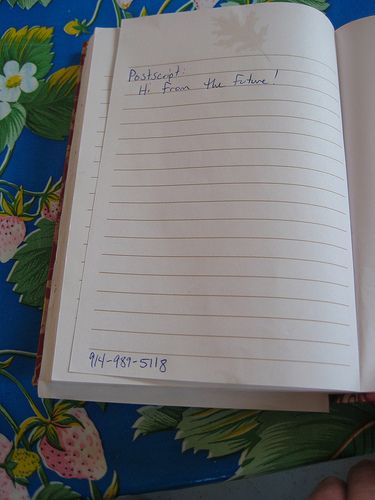 Postscript:
Hi from the future!
914-989-5118